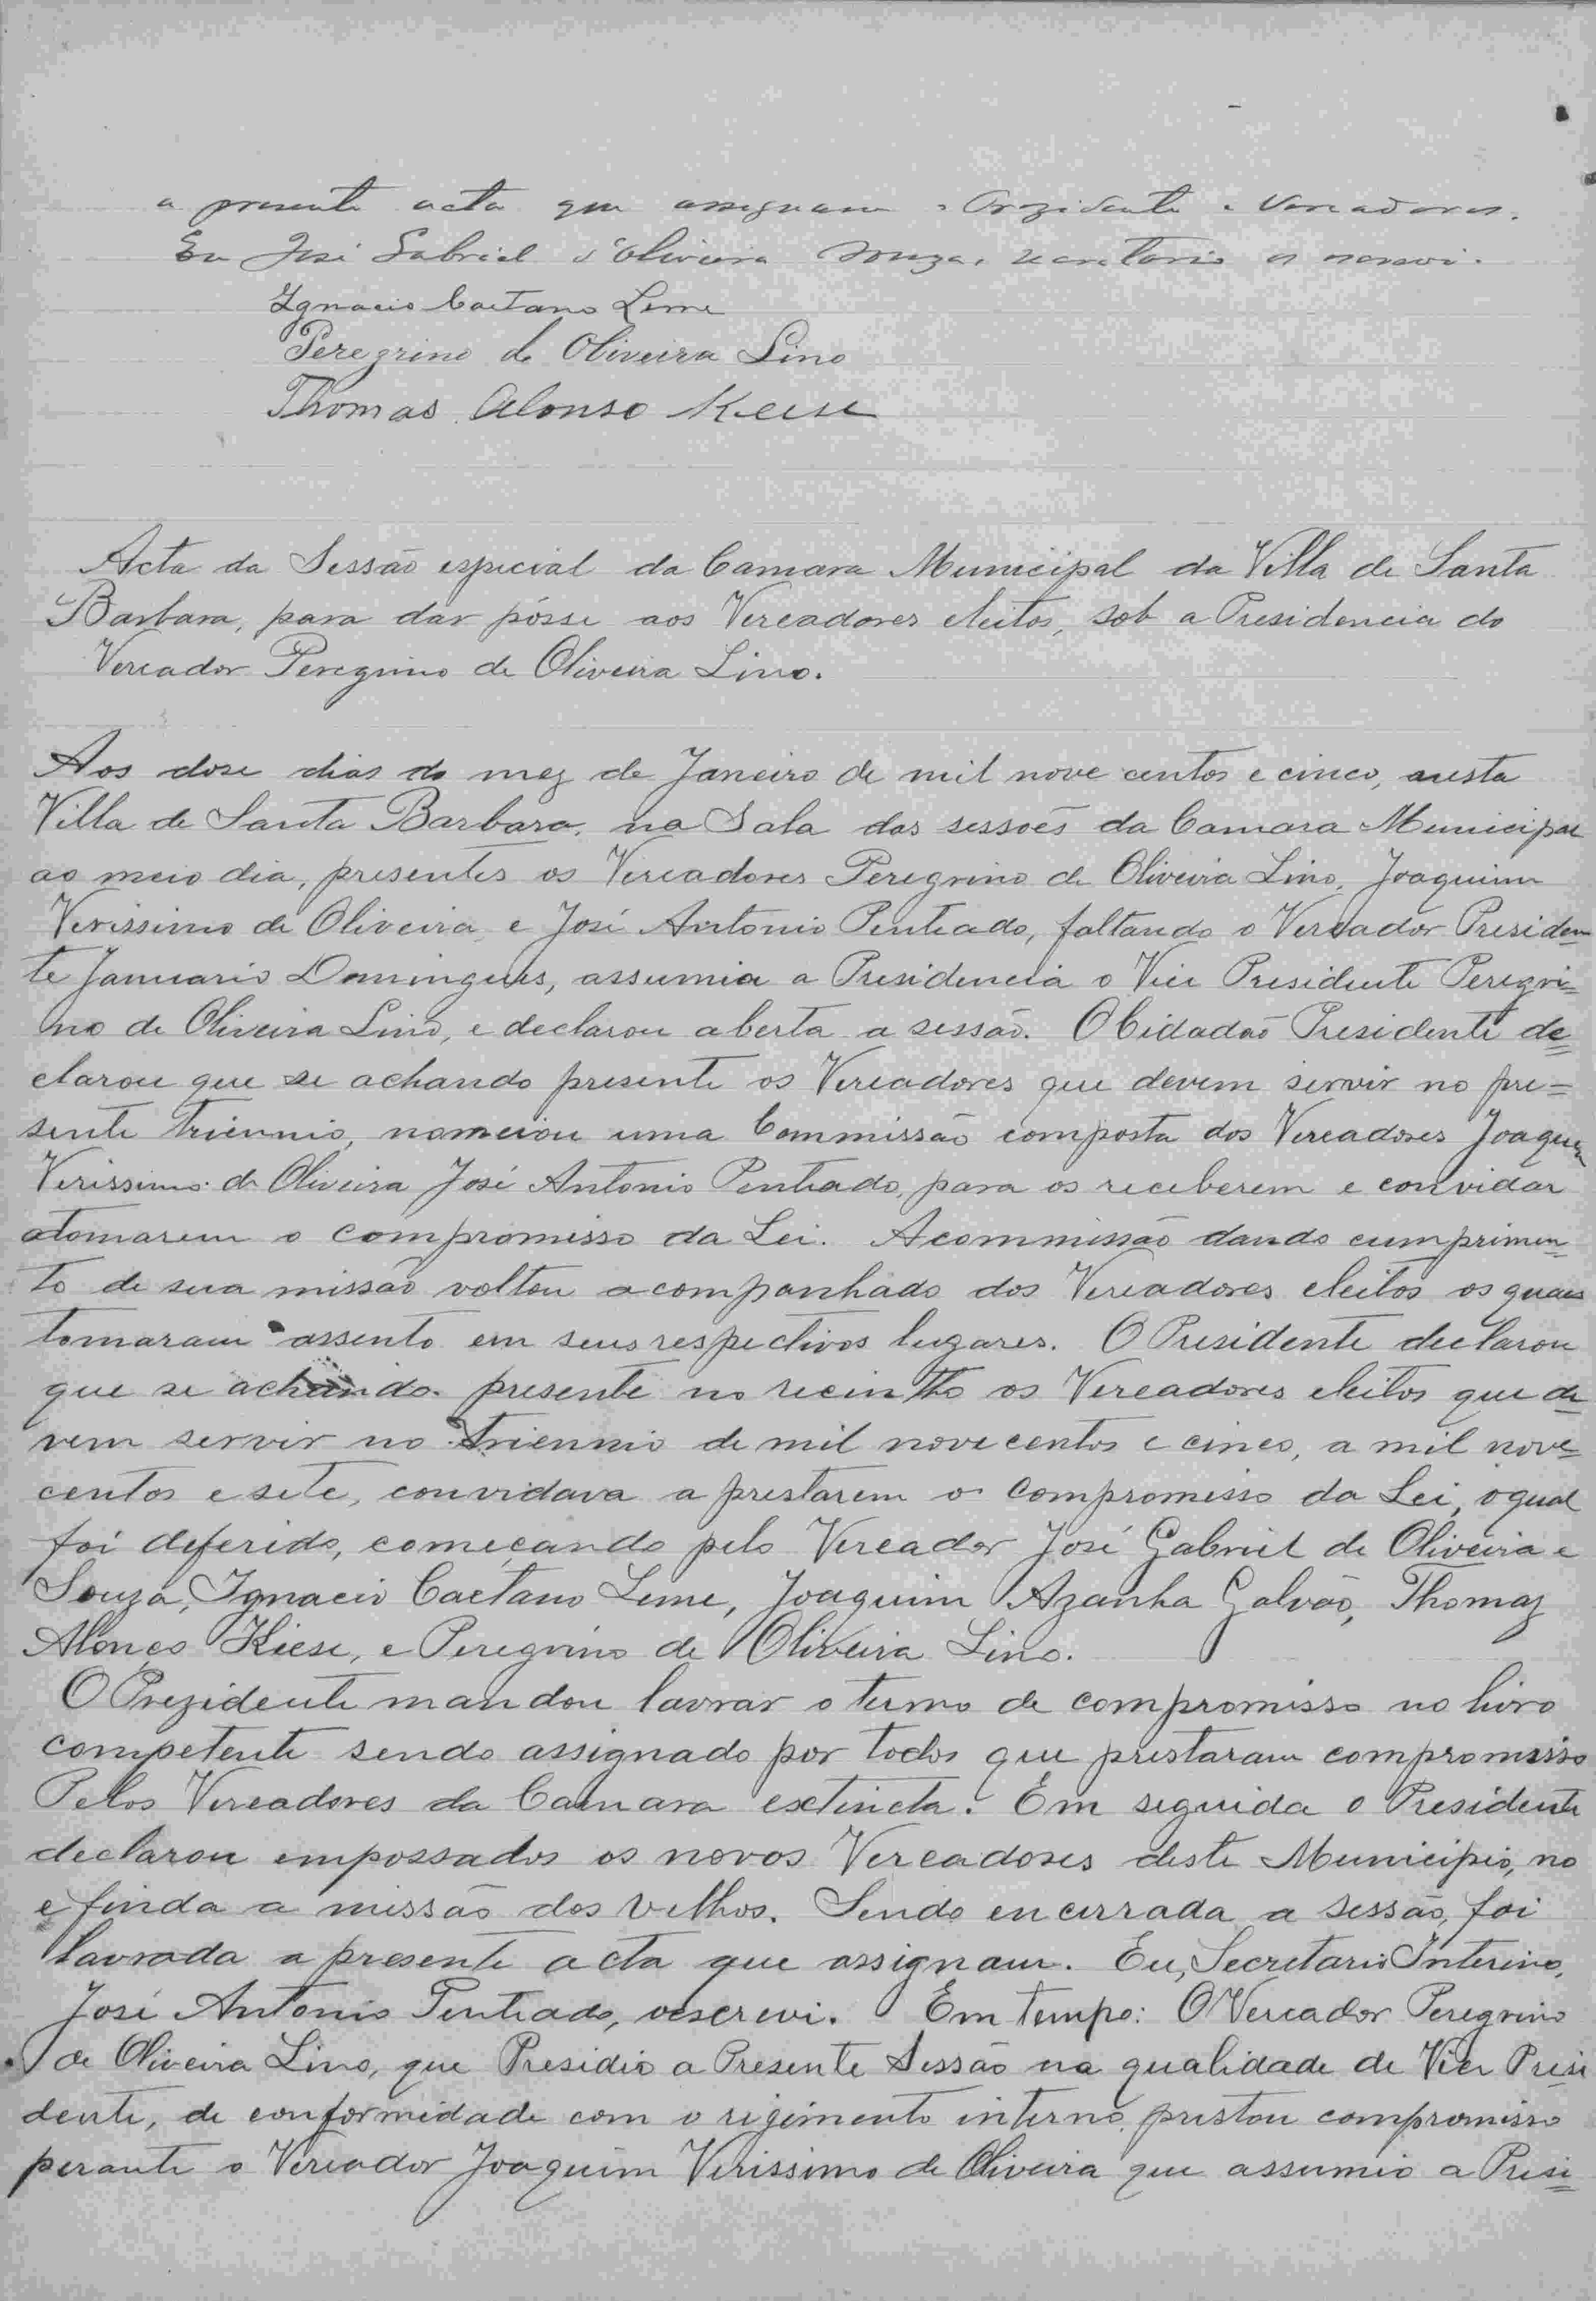 a presente acta que assignam o Prezidente e Vereadores.
Eu José Gabriel d'Oliveira Souza, secretario a escrevi.
Ignacio Caetano Leme
Peregrino de Oliveira Lino
Thomas Alonso Keese
Acta da Sessão especial da Camara Municipal da Villa de Santa
Barbara, para dar pósse aos Vereadores eleitos, sob a Presidencia do
Vereador Peregrino de Oliveira Lino.
Aos dose dias do mez de Janeiro de mil nove centos e cinco, nesta
Villa de Santa Barbara, na Sala das sessoēs da Camara Municipal
ao meio dia, presentes os Vereadores Peregrino de Oliveira Lino, Joaquim
Verissimo de Oliveira e José Antonio Penteado, faltando o Vereador Presiden=
te Januario Domingues, assumia a Presidencia o Vice Presidente Peregri=
no de Oliveira Lino, e declarou aberta a sessão. O Cidadaõ Presidente de=
clarou que se achando presente os Vereadores que devem servir no pre=
sente triennio, nomeiou uma Commissão composta dos Vereadores Joaquim
Verissimo de Oliveira José Antonio Penteado, para os receberem e convidar
atomarem o compromisso da Lei. Acommissão dando cumprimen=
to de sua missão voltou acompanhado dos Vereadores eleitos os quaes
tomaram assento em seus respectivos lugares. O Presidente declarou
que se achando presente no recintho os Vereadores eleitos que de=
vem servir no triennio de mil nove centos e cinco, a mil nove=
centos e sete, convidava a prestarem o compromisso da Lei, oqual
foi deferido, começando pelo Vereador José Gabriel de Oliveira e
Souza, Ignacio Caetano Leme, Joaquim Azanha Galvão, Thomaz
Alonço Kiese, e Peregrino de Oliveira Lino.
O Prezidente mandou lavrar o termo de compromisso no livro
competente sendo assignado por todos que prestaram compromisso
Pelos Vereadores da Camara extincta. Em seguida o Presidente
declarou empossados os novos Vereadores deste Municipio, no
e finda a missão dos velhos. Sendo encerrada a sessão, foi
lavrada a presente acta que assignam. Eu, Secretario Interino,
José Antonio Penteado, oescrevi. Em tempo: O Vereador Peregrino
de Oliveira Lino, que Presidio a Presente Sessão na qualidade de Vice Presi
dente, de conformidade com o regimento interno, prestou compromisso
perante o Vereador Joaquim Verissimo de Oliveira que assumio a Presi=